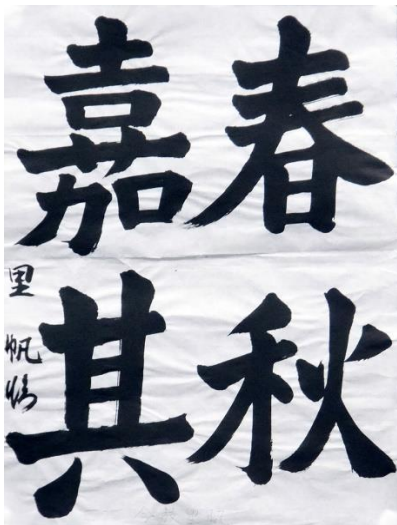 春秋
嘉其
里帆